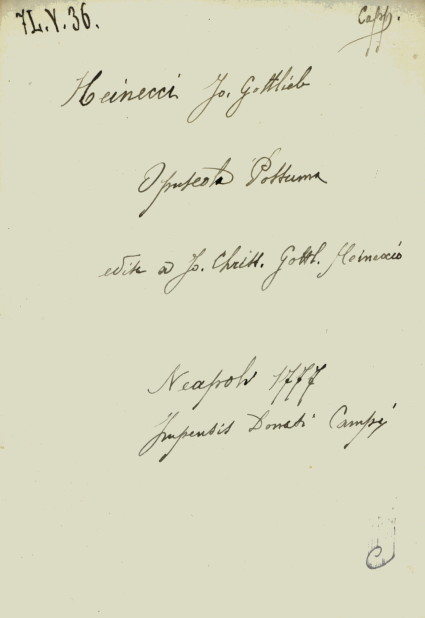 7L.V.36.
Capp.
Heinecci Jo. Gottlieb
Opuscola Postuma
edita a Jo. Christ. Gottl. Heineccio
Neapoli 1777
Impensis Donati Campi
C